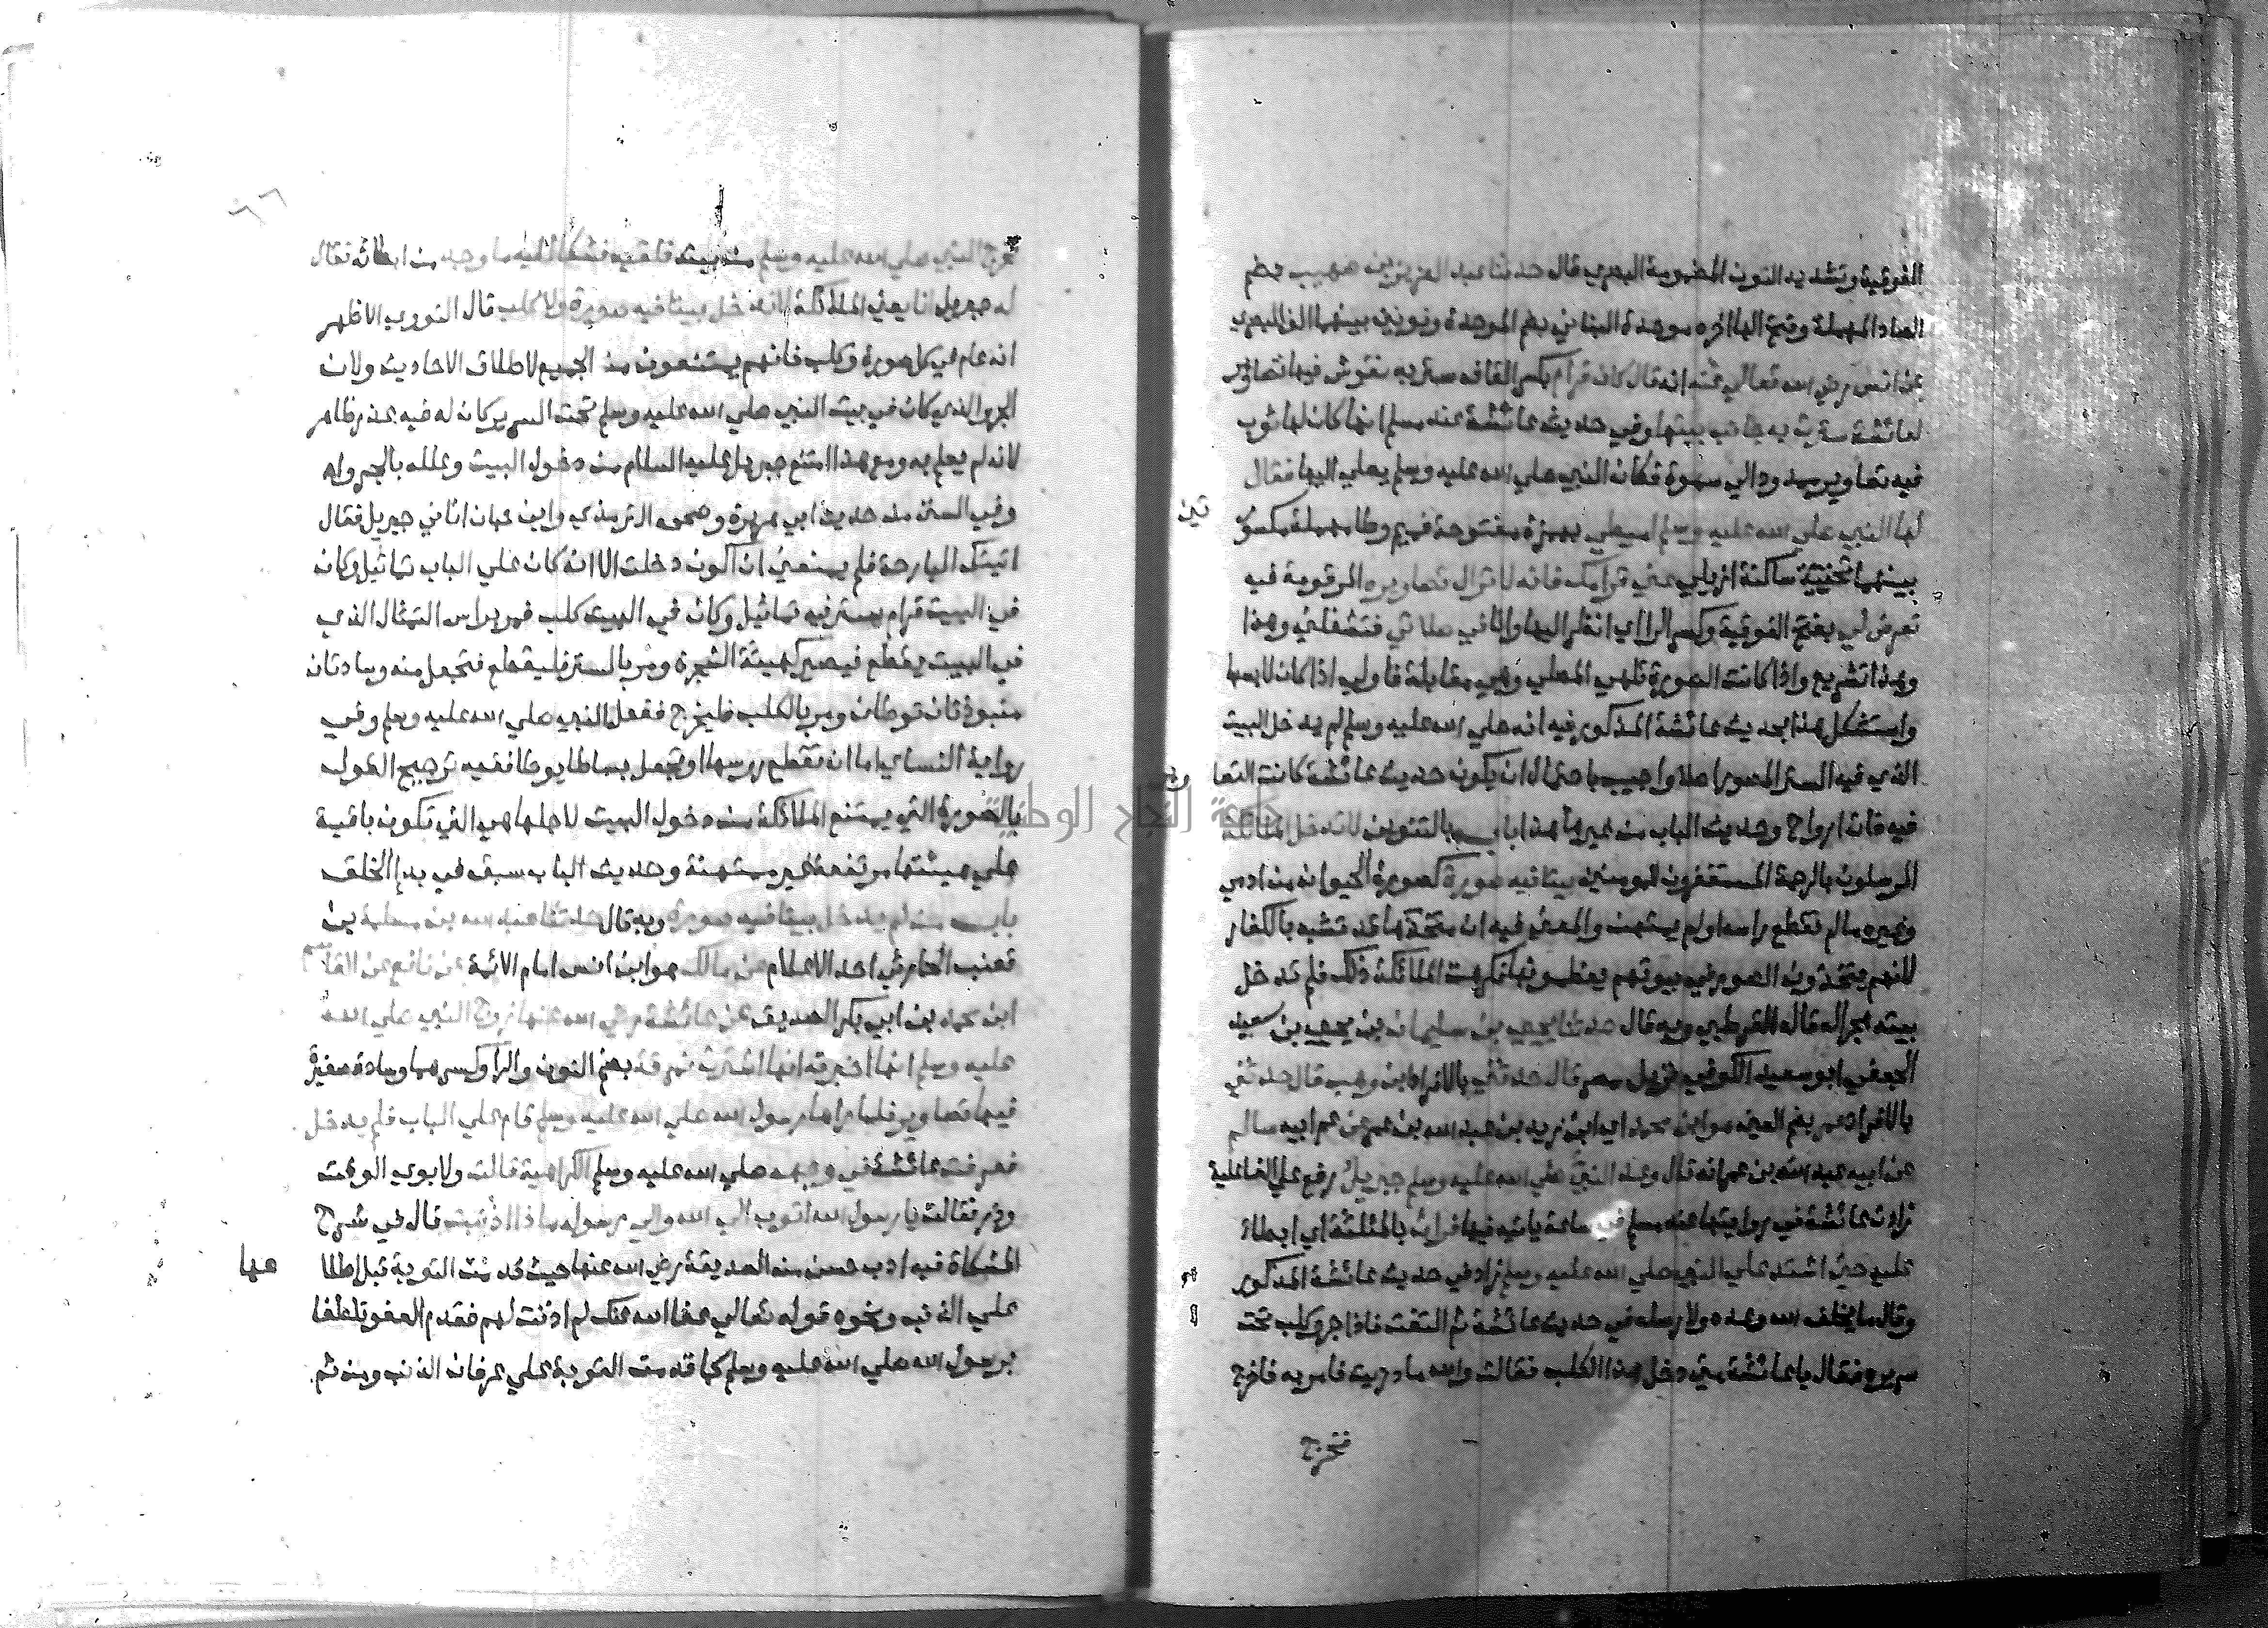 الفوقية وتشديد النون المضمومة البصري قال حدثنا عبد العزيز بن صهيب بضم
الصاد المهملة وفتح الهااخره موحدة البناني بضم الموحدة ونونين بينهما الف البصري
عن انس رضي الله تعالي عنه انه قال كان قرام بكسر القاف ستر به نقوش فيها تصاوير
لعائشة سترت به جانب بيتها وفي حديث عائشة عند مسلم انها كان لها ثوب
فيه تصاوير ممدود الي سهوة فكان النبي صلي الله عليه وسلم يصلي اليها فقال
لها النبي صلي الله عليه وسلم اميطي بهمزة مفتوحة فميم وطا مهملة مكسو
تين
بينهما تحتية ساكنة ازيلي عني قرامك فانه لا تزال تصاويره المرقومة فيه
تعرض لي بفتح الفوقية وكسر الراای انظر اليها وانا في صلاتي فتشغلني وهذا
وهذا تشريع واذا كانت الصورة تلهي المصلي وهي مقابلة فاولي اذا كان لابسها
واستشكل هذا بحديث عائشة المذكور فيه انه صلي الله عليه وسلم لم يدخل البيت
الذي فيه الستر المصور اصلا واجيب باحتمال ان يكون حديث عائشة كانت التصا
فيه ذات ارواح وحديث الباب من غيرها هذا باب بالتنوين لا تدخل الملائكة
المرسلون بالرحمة المستغفرون للمومنين بيتا فيه صورة كصورة الحيوان من ادمي
وغيره مالم تقطع راسه اولم يمتهن والمعنى فيه ان متخذها قد تشبه بالكفار
لانهم يتخذون الصور في بيوتهم يعظمونها فكرهت الملائكة ذلك فلم تدخل
بيته هجرا له قاله القرطبي وبه قال حدثنا يحيى بن سليمان بن يحيى بن سعيد
الجعفي ابو سعيد الكوفي نزيل مصر قال حدثني بالافراد ابن وهب قال حدثني
بالافراد عمر بضم العين هو ابن محمد اي ابن زيد بن عبد الله بن عمر عن عم ابيه سالم
عن ابيه عبد الله بن عمر انه قال وعد النبي صلي الله عليه وسلم جبريل رفع علي الفاعلية
زادت عائشة في روايتها عند مسلم في ساعة ياتيه فيها فراث بالمثلثة اي ابطاء
عليه حتى اشتد علي النبي صلي الله عليه وسلم زاد في حديث عائشة المذكور
وقال ما يخلف الله وعده ولا رسله في حديث عائشة ثم التفت فاذا جرو كلب تحت
سريره فقال يا عائشة متى دخل هذا الكلب فقالت والله ما دريت فامر به فاخرج
فخرج
فخرج النبي صلي الله عليه وسلم من بيته فلقيه فشكا اليه ما وجد من ابطائه فقال
له جبريل انا يعني الملائكة لا ندخل بيتا فيه صورة ولا كلب قال النووي الاظهر
انه عام في كل صورة وكلب فانهم يمتنعون من الجميع لاطلاق الاحاديث ولان
الجرو الذي كان في بيت النبي صلي الله عليه وسلم تحت السرير كان له فيه عذر ظاهر
لانه لم يعلم به ومع هذا امتنع جبريل عليه السلام من دخول البيت وعلله بالجرو اه
وفي السنن من حديث ابي هريرة وصححه الترمذي وابن حبان اتاني جبريل فقال
اتيتك البارحة فلم يمنعني ان اكون دخلت الا انه كان علي الباب تماثيل وكان
في البيت قرام ستر فيه تماثيل وكان في البيت كلب فمر براس التمثال الذي
في البيت يقطع فيصير كهيئة الشجرة ومر بالستر فليقطع فتجعل منه وسادتان
منبوذتان توطان ومر بالكلب فليخرج ففعل النبي صلي الله عليه وسلم وفي
رواية النساي اما ان تقطع روسها او تجعل بساطا يوطا ففيه ترجيح القول
بالصورة التي يمتنع الملائكة من دخول البيت لاجلها هي التي تكون باقية
علي هيئتها مرتفعة غير ممتهنة وحديث الباب سبق في بدء الخلق
باب من لم يدخل بيتا فيه صورة وبه قال حدثنا عبد الله بن مسلمة بن
قعنب الحارثي احد الاعلام عن مالك هو ابن انس امام الائمة عن نافع عن القاسم
ابن محمد بن ابي بكر الصديق عن عائشة رضي الله عنها زوج النبي صلي الله
عليه وسلم انها اخبرته انها اشترت نمرقة بضم النون والرا وكسرهما وسادة صغيرة
فيها تصاوير فلما راها رسول الله صلي الله عليه وسلم قام علي الباب فلم يدخل
فعرفت عائشة في وجهه صلي الله عليه وسلم الكراهية قالت ولابوي الوقت
وذر فقالت يا رسول الله اتوب الي الله والي رسوله ماذا اذنبت قال في شرح
المشكاة فيه ادب حسن من الصديقة رضي الله عنها حيث قدمت التوبة قبل اطلا
عها
علي الذنب ونحوه قوله تعالي عفا الله عنك لم اذنت لهم فقدم العفو تلطفا
برسول الله صلي الله عليه وسلم كما قدمت التوبة علي عرفان الذنب ومن ثم